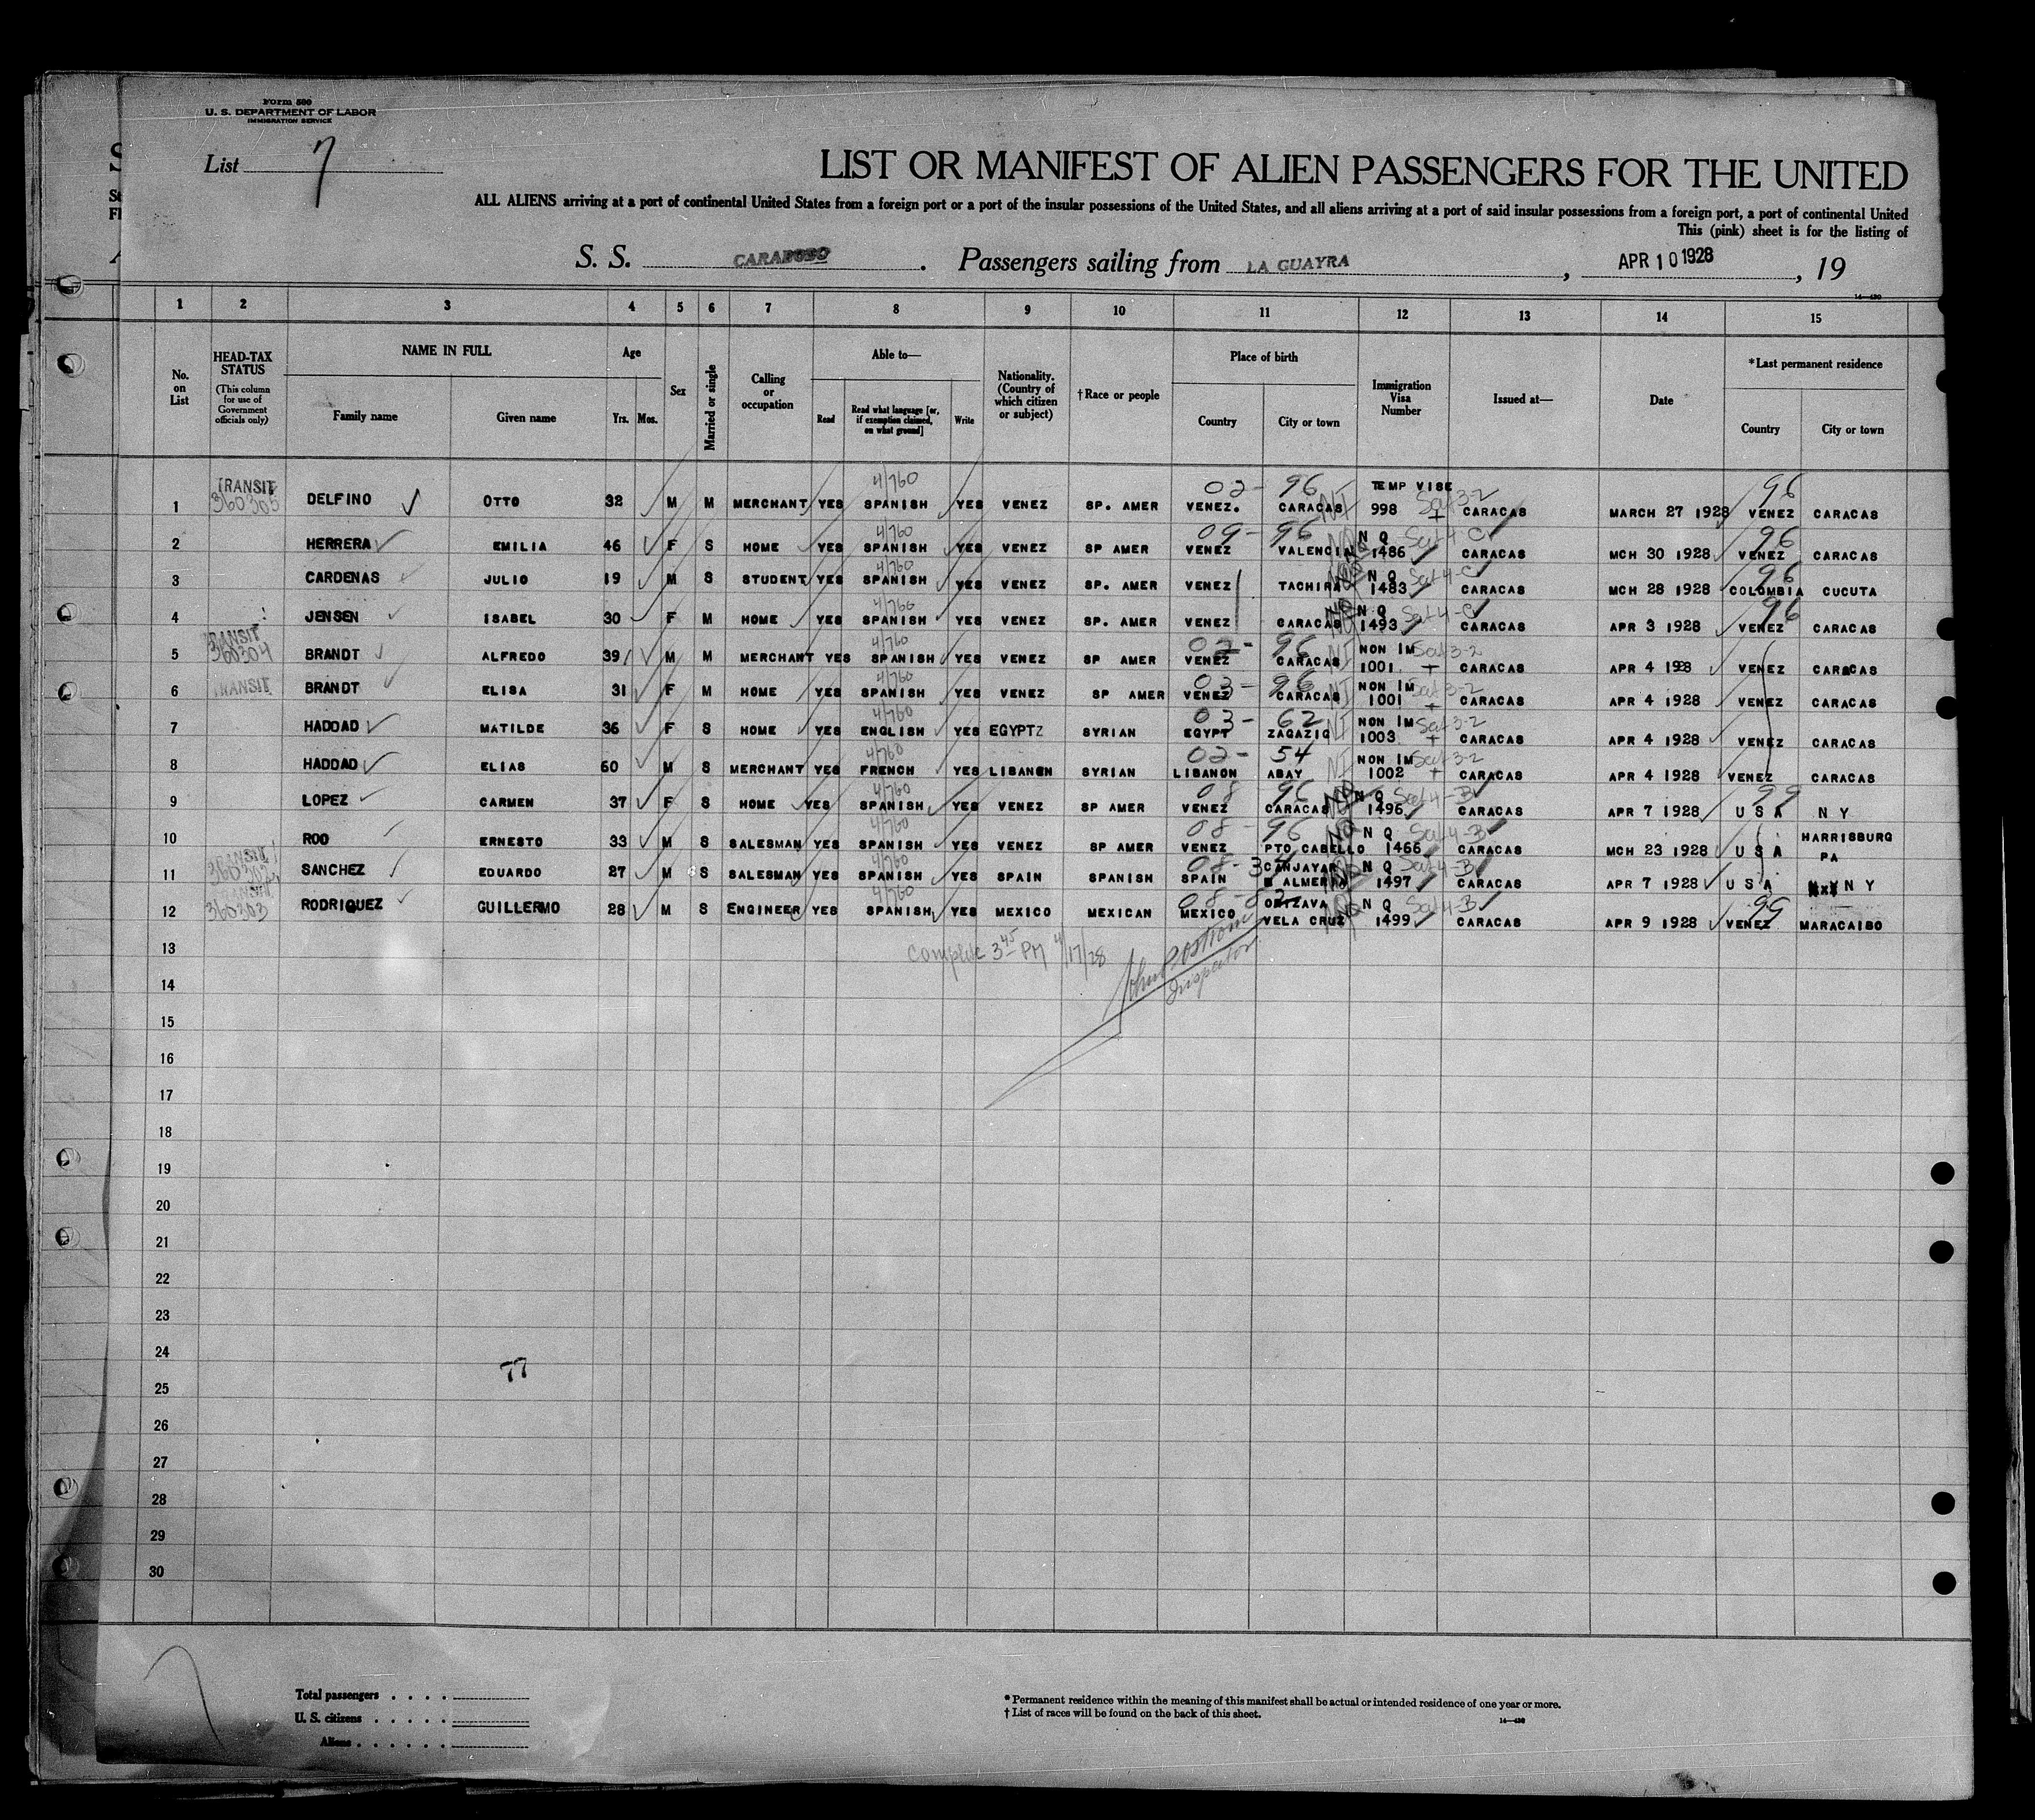 Form 500
U. S. DEPARTMENT OF LABOR
IMMIGRATION SERVICE
List 7
LIST OR MANIFEST OF ALIEN PASSENGERS FOR THE UNITED
ALL ALIENS arriving at a port of continental United States from a foreign port or a port of the insular possessions of the United States, and all aliens arriving at a port of said insular possessions from a foreign port, a port of continental United
This (pink) sheet is for the listing of
S. S. CARABOBO. Passengers sailing from LA GUAYRA, APR 10 1928, 19
1 2 3 4 5 6 7 8 9 10 11 12 13 14 15
No. on List
HEAD-TAX STATUS (This column for use of Government officials only)
NAME IN FULL Family name Given name
Age Yrs. Mos.
Sex
Married or single
Calling or occupation
Able to— Read Read what language [or, if exemption claimed, on what ground] Write
Nationality. (Country of which citizen or subject)
†Race or people
Place of birth Country City or town
Immigration Visa Number
Issued at—
Date
*Last permanent residence Country City or town
1 TRANSIT 360305 DELFINO OTTO 32 M M MERCHANT YES 4/760 SPANISH YES VENEZ SP. AMER 02- VENEZ. 96 CARACAS NI TEMP VISE 998 Sec 3-2 CARACAS MARCH 27 1928 96 VENEZ CARACAS
2 HERRERA EMILIA 46 F S HOME YES 4/760 SPANISH YES VENEZ SP AMER 09- VENEZ 96 VALENCIA N Q 1486 Sec 4-C CARACAS MCH 30 1928 96 VENEZ CARACAS
3 CARDENAS JULIO 19 M S STUDENT YES 4/760 SPANISH YES VENEZ SP. AMER VENEZ TACHIRA N Q 1483 Sec 4-C CARACAS MCH 28 1928 96 COLOMBIA CUCUTA
4 JENSEN ISABEL 30 F M HOME YES 4/760 SPANISH YES VENEZ SP. AMER VENEZ CARACAS N Q 1493 Sec 4-C CARACAS APR 3 1928 96 VENEZ CARACAS
5 TRANSIT 360304 BRANDT ALFREDO 39 M M MERCHANT YES 4/760 SPANISH YES VENEZ SP AMER 02- VENEZ 96 CARACAS NI NON IM 1001 Sec 3-2 CARACAS APR 4 198 VENEZ CARACAS
6 TRANSIT BRANDT ELISA 31 F M HOME YES 4/760 SPANISH YES VENEZ SP AMER 03- VENEZ 96 CARACAS NI NON IM 1001 Sec 3-2 CARACAS APR 4 1928 VENEZ CARACAS
7 HADDAD MATILDE 36 F S HOME YES 4/760 ENGLISH YES EGYPTZ SYRIAN 03- EGYPT 62 ZAGAZIG NI NON IM 1003 Sec 3-2 CARACAS APR 4 1928 VENEZ CARACAS
8 HADDAD ELIAS 60 M S MERCHANT YES 4/760 FRENCH YES LIBANON SYRIAN 02- LIBANON 54 ABAY NI NON IM 1002 Sec 3-2 CARACAS APR 4 1928 VENEZ CARACAS
9 LOPEZ CARMEN 37 F S HOME YES 4/760 SPANISH YES VENEZ SP AMER 08 VENEZ 96 CARACAS N Q 1496 Sec 4-B CARACAS APR 7 1928 99 U S A N Y
10 ROO ERNESTO 33 M S SALESMAN YES 4/760 SPANISH YES VENEZ SP AMER 08- VENEZ 96 PTO CABELLO N Q 1466 Sec 4-B CARACAS MCH 23 1928 U S A HARRISBURG PA
11 TRANSIT SANCHEZ EDUARDO 27 M S SALESMAN YES 4/760 SPANISH YES SPAIN SPANISH 08- SPAIN CANJAYAR ALMERIA N Q 1497 Sec 4-B CARACAS APR 7 1928 U S A N Y
12 360303 RODRIQUEZ GUILLERMO 28 M S ENGINEER YES 4/760 SPANISH YES MEXICO MEXICAN 08- MEXICO ORIZAVA VELA CRUZ N Q 1499 Sec 4-B CARACAS APR 9 1928 99 VENEZ MARACAIBO
13 Complete 3 45 PM 4/17/28
14 Inspector
15
16
17
18
19
20
21
22
23
24
77
25
26
27
28
29
30
Total passengers
U. S. citizens
Aliens
* Permanent residence within the meaning of this manifest shall be actual or intended residence of one year or more.
† List of races will be found on the back of this sheet.